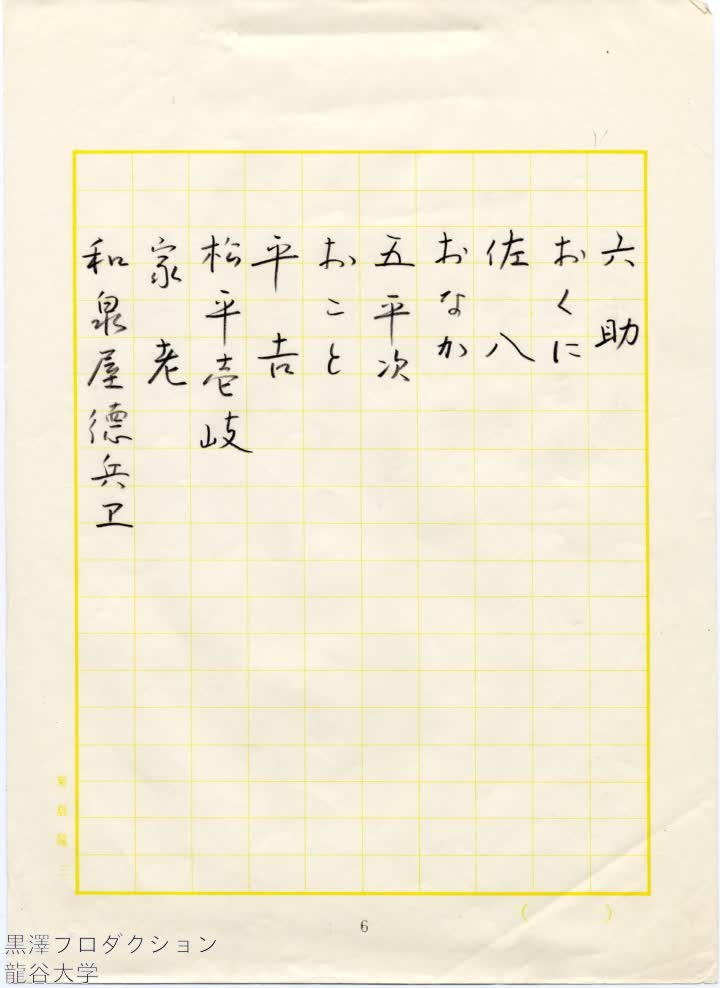 六助
おくに
佐八
おなか
五平次
おこと
平吉
松平壱岐
家老
和泉屋徳兵卫
( )
6
黒澤プロダクション
龍谷大学